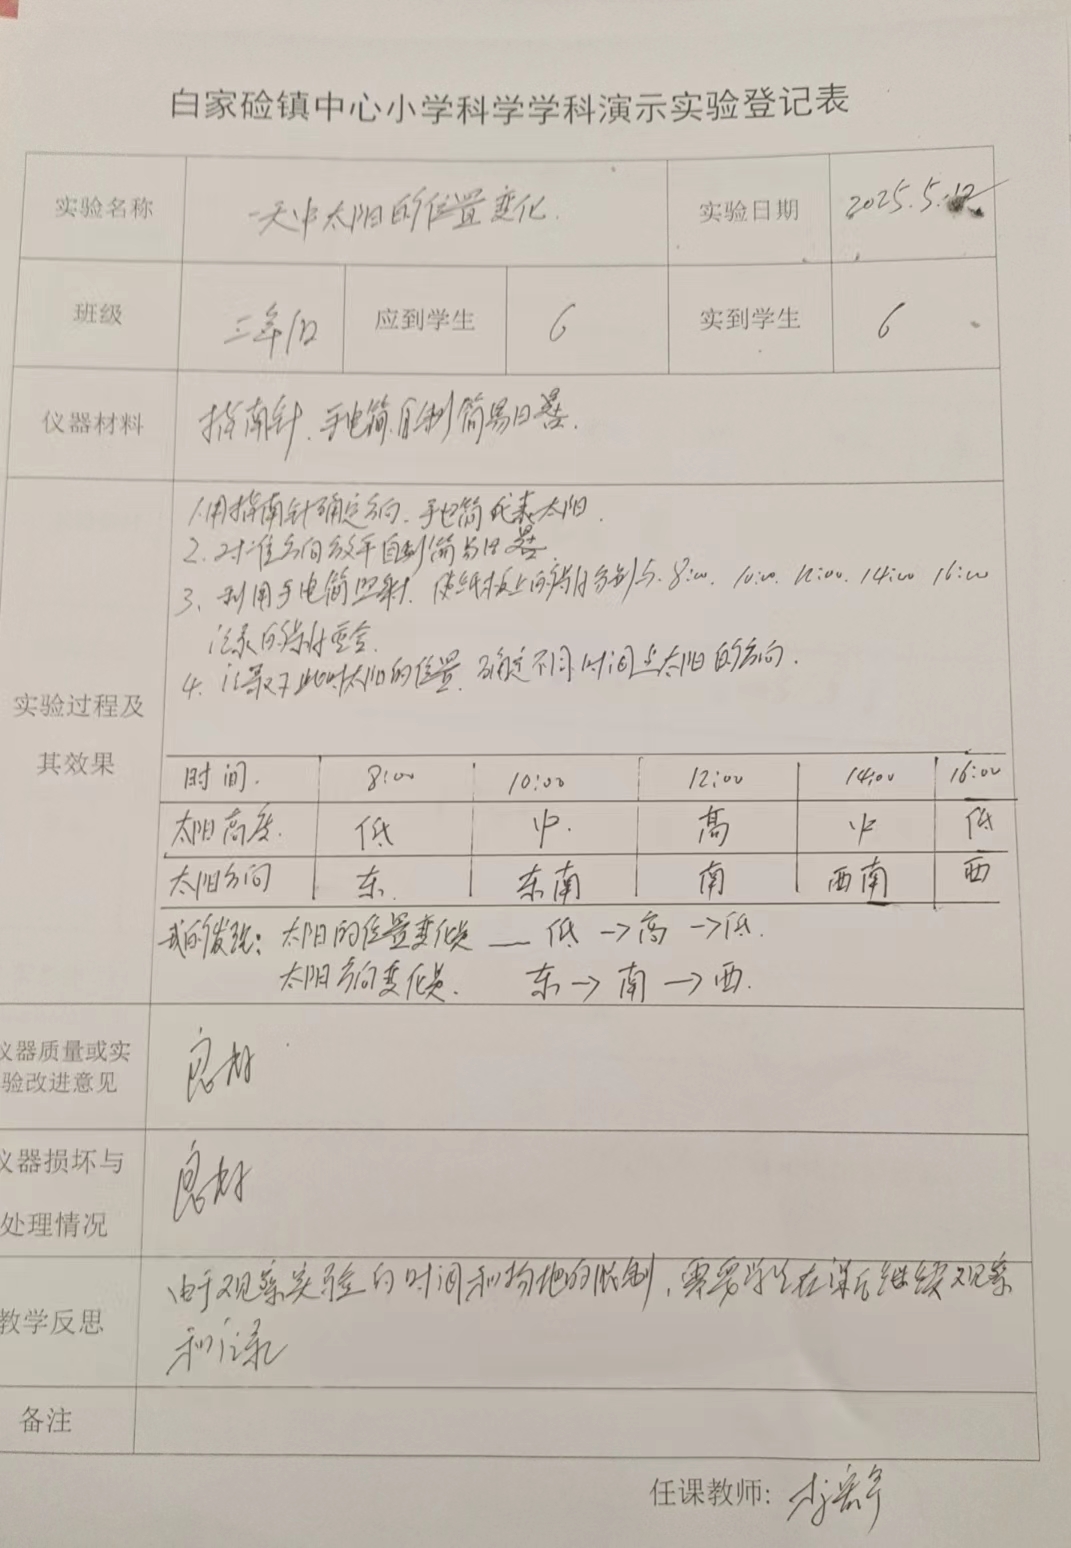 白家硷镇中心小学科学学科演示实验登记表
实验名称 一天中太阳的位置变化. 实验日期 2025.5.12
班级 三年级 应到学生 6 实到学生 6
仪器材料 指南针、手电筒、自制简易日晷.
实验过程及
其效果
1.用指南针确定方向、手电筒代表太阳.
2.对准方向放平自制简易日晷
3、利用手电筒照射,使纸板上的影子分别与8:00. 10:00. 12:00. 14:00 16:00
记录的影子重合.
4. 记录下此时太阳的位置、确定不同时间上太阳的方向.
时间. 8:00 10:00 12:00 14:00 16:00
太阳高度. 低 中. 高 中 低
太阳方向 东. 东南 南 西南 西
我的发现: 太阳的位置变化是 — 低→高→低.
太阳方向变化是. 东→南→西.
仪器质量或实
验改进意见
良好
仪器损坏与
处理情况
良好
教学反思
由于观察实验的时间和场地的限制,需要学生在课后继续观察
和记录
备注
任课教师: